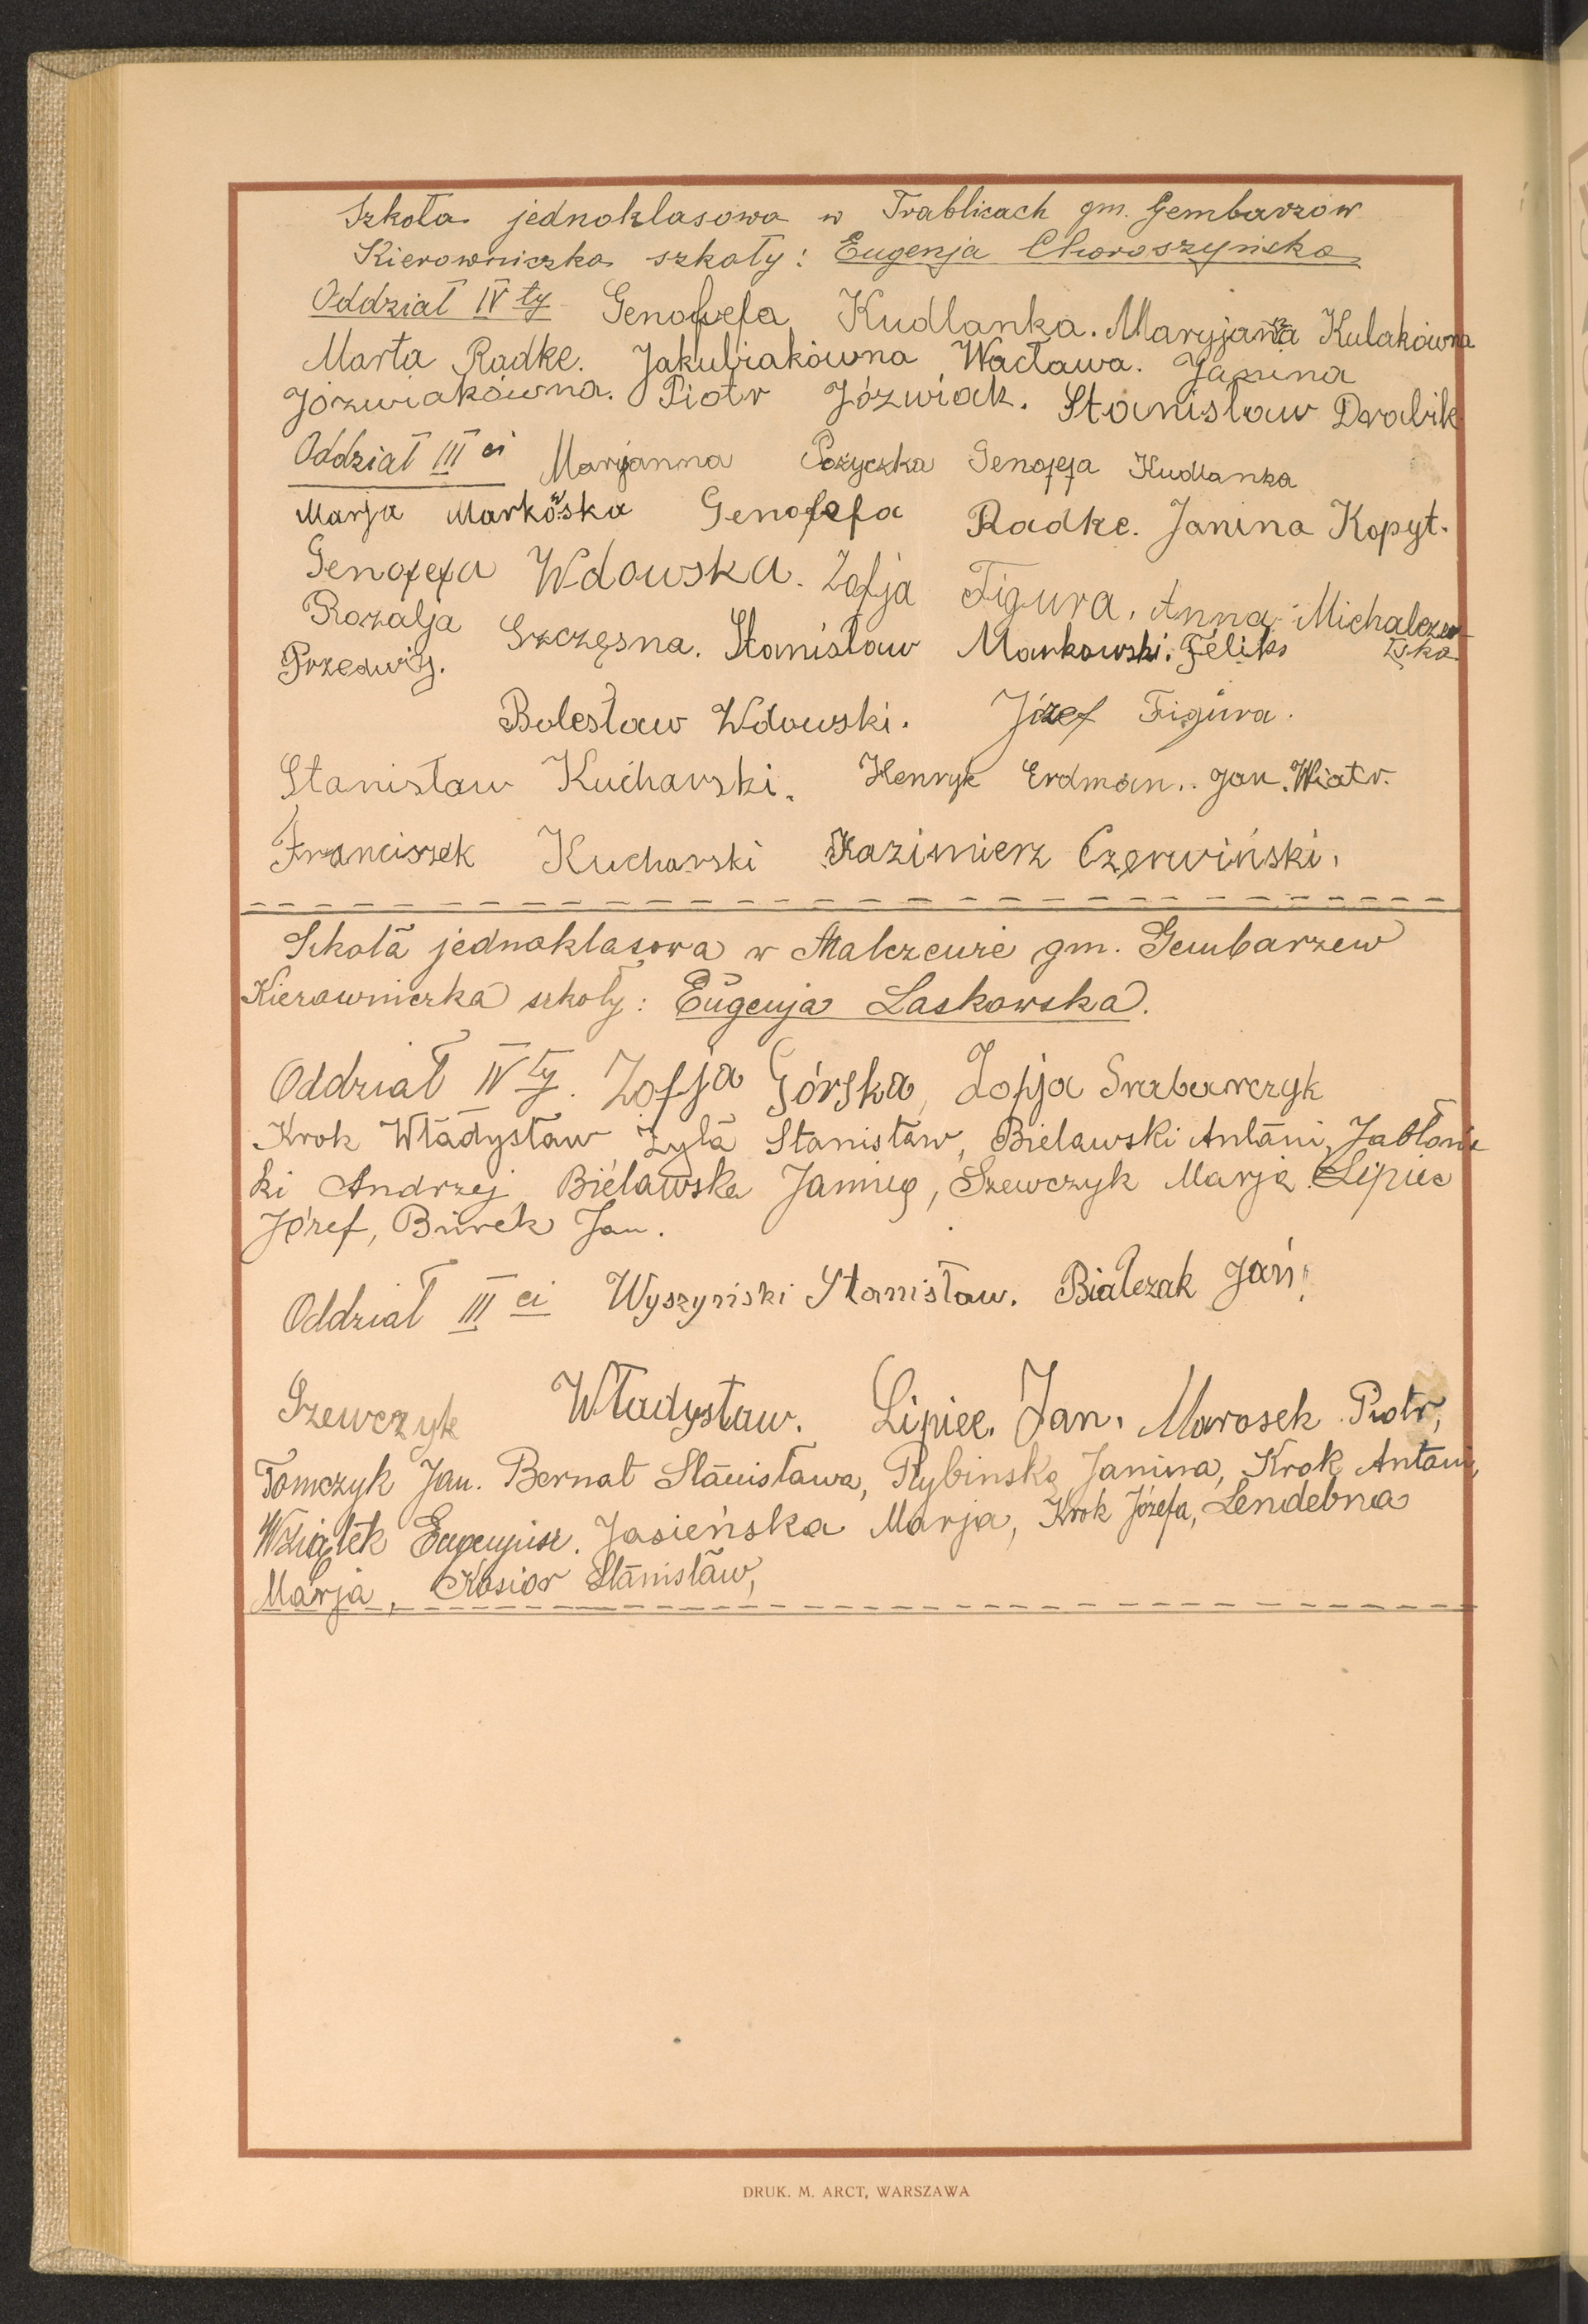 Szkoła jednoklasowa w Trablicach gm. Gembarzów
Kierowniczka szkoły: Eugenja Choroszyńska
Oddział IV ty Genofefa Kudlanka. Maryjanna Kulakówna
Marta Radke. Jakubiakówna Wacława. Janina
Józwiakówna. Piotr Józwiak. Stanisław Drabik
Oddział III ci Maryjanna Pożyczka Genofefa Kudlanka
Marja Markowska Genofefa Radke. Janina Kopyt.
Genofefa Wdowska. Zofja Figura, Anna Michalczew-
ska
Rozalja Szczęsna. Stanisław Markowski. Féliks
Przedwój.
Bolesław Wdowski. Józef Figura.
Stanisław Kucharski. Henryk Erdman.. Jan. Wiatr.
Franciszek Kucharski Kazimierz Czerwiński.
Szkoła jednoklasowa w Malczewie gm. Gembarzew
Kierowniczka szkoły: Eugenja Laskowska.
Oddział IV ty. Zofja Górska, Zofja
Krok Władysław, Żyła Stanisław, Bielawski Antoni, Jabłońs
ki Andrzej Bielawska Janina, Szewczyk Marja Lipiec
Józef, Burek Jan.
Oddział III ci Wyszyński Stanisław. Białczak Jan,
Szewczyk Władysław. Lipiec. Jan. Marosek Piotr,
Tomczyk Jan. Bernat Stanisława, Rybinska Janina, Krok Antoni,
Wziątek Eugenjusz. Jasieńska Marja, Krok Józefa, Lendebna
Marja, Kosior Stanisław,
DRUK. M. ARCT, WARSZAWA